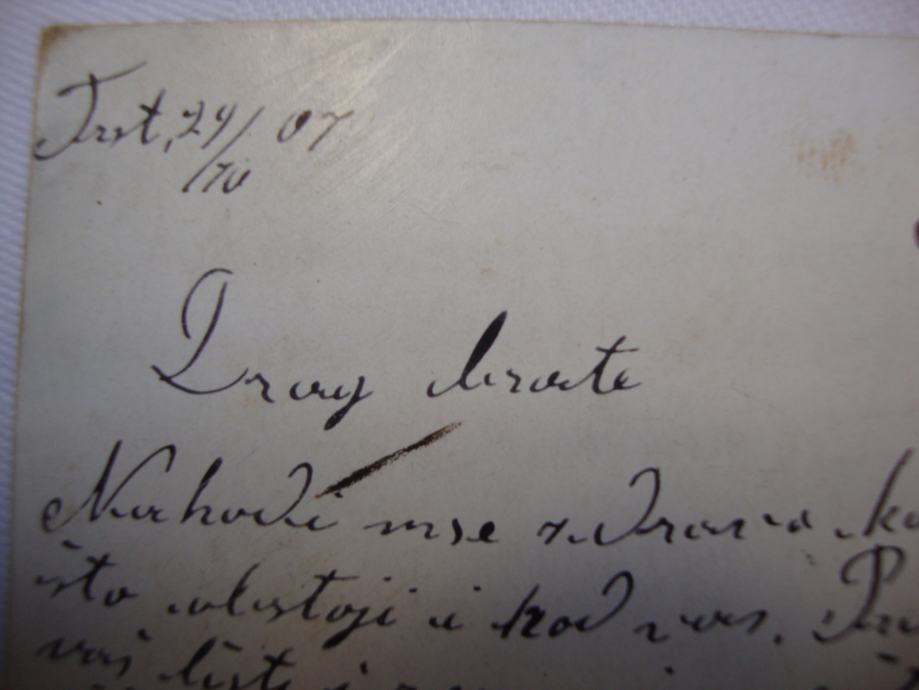 Trst, 29/10 07
Dragi brate
Nahodi mse zdrav
što obstoji i kod vas.
vaš list i